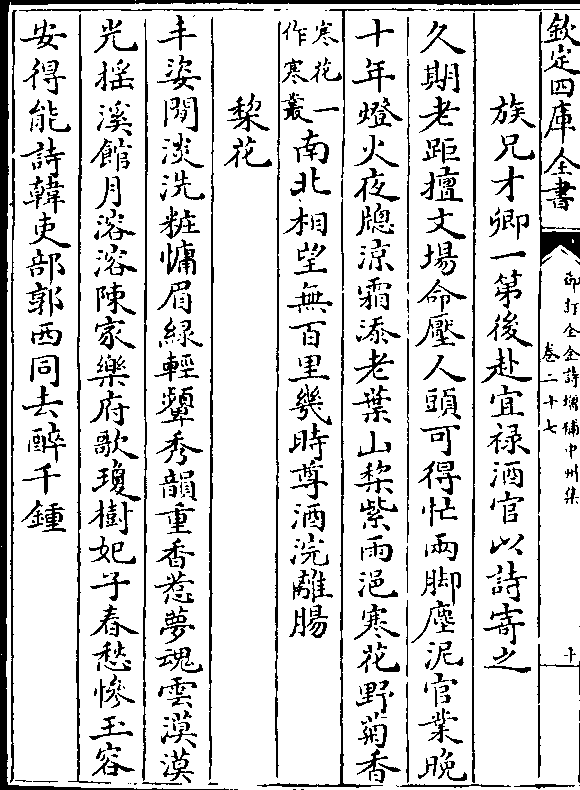 欽定四庫全書
御訂全金詩增補中州集
卷二十七
十
族兄才卿一第後赴宜禄酒官以詩寄之
久期老距擅文場命壓人頭可得忙兩脚塵泥官業晚
十年燈火夜牕涼霜添老葉山棃紫雨浥寒花野菊香
寒花一
作寒叢
南北相望無百里幾時尊酒浣離腸
棃花
丰姿閒淡洗粧慵眉緑輕顰秀韻重香惹夢魂雲漠漠
光揺溪館月溶溶陳家樂府歌瓊樹妃子春愁慘玉容
安得能詩韓吏部郭西同去醉千鍾